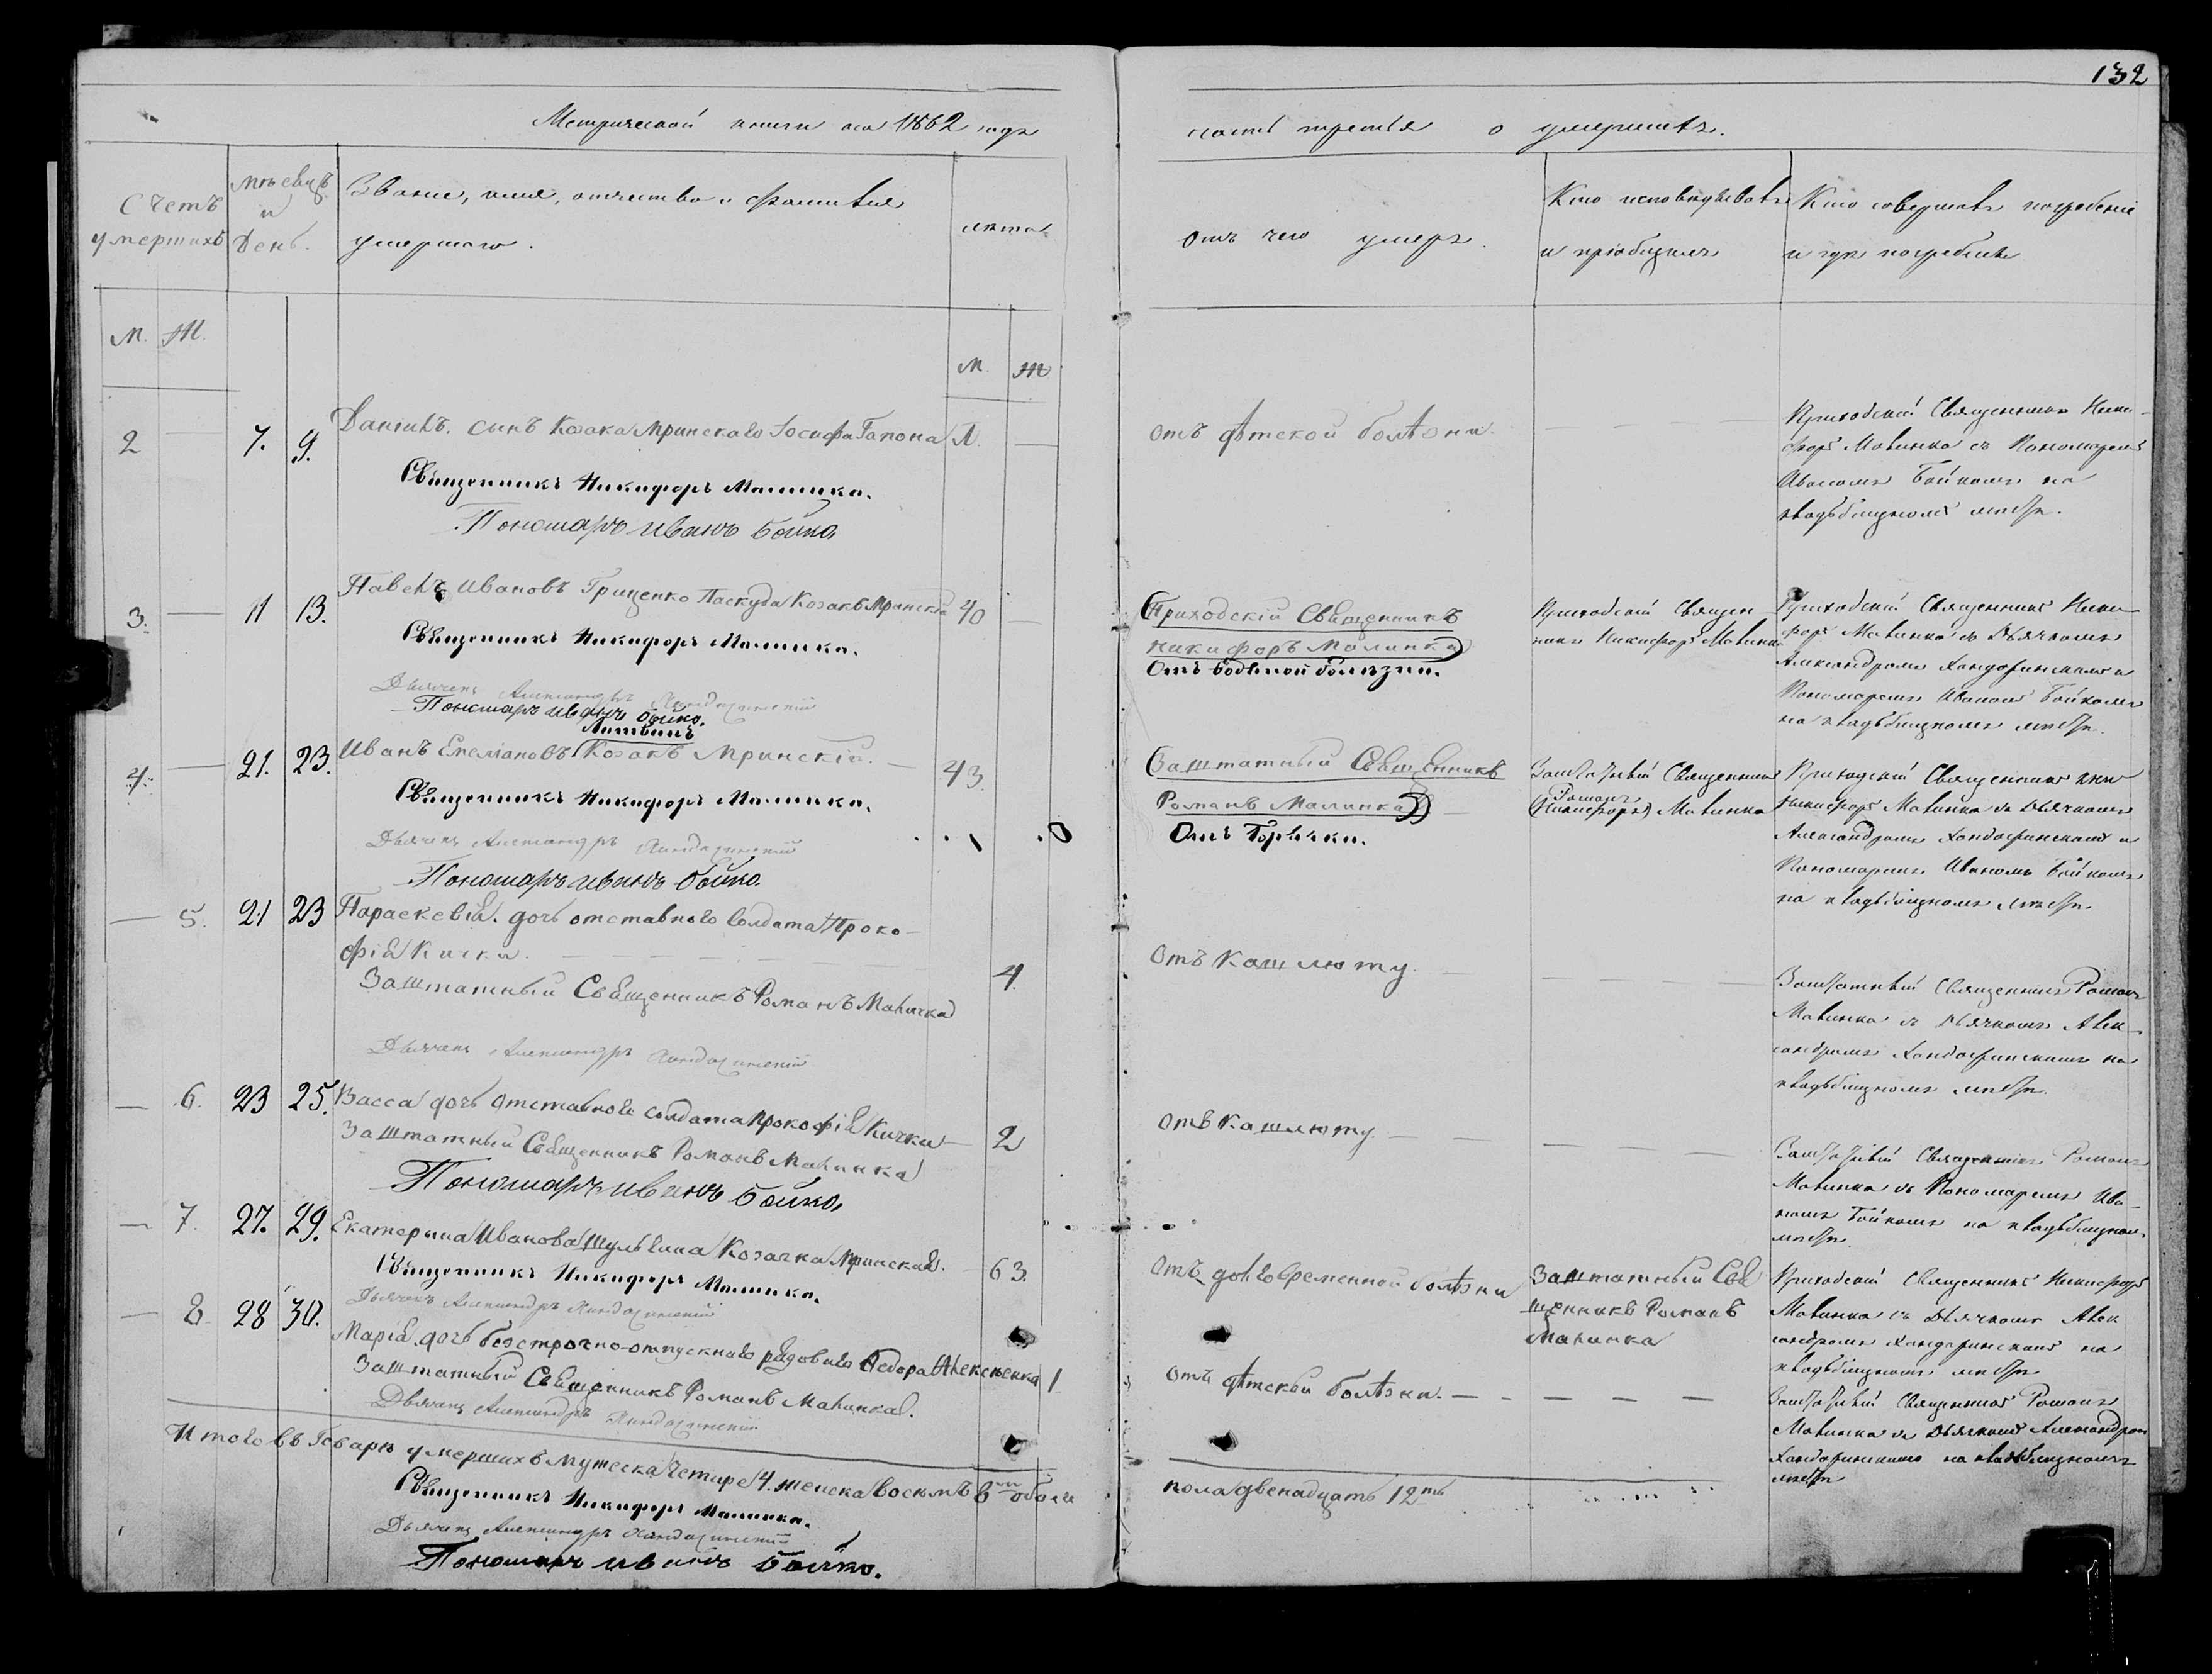 132
Метрической книги на 1862 годъ
часть третья о умершихъ.
Счетъ умершихъ
Мѣсецъ и День.
Званіе, имя, отчество и фамилія умершаго.
лѣта
Отъ чего умеръ.
Кто исповѣдывалъ и пріобщилъ
Кто совершалъ погребеніе и гдѣ погребены
М. Ж.
М. Ж
2 — 7. 9.
Даніилъ. сынъ Козака Мринскаго Іосифа Гапона
Л. —
Священникъ Никифоръ Малинка.
Пономарь Иванъ Бойко
отъ дѣтской болѣзни.
Приходскій Священникъ Ники-
форъ Малинка съ Пономаремъ
Иваномъ Бойкомъ на
кладбищномъ мѣстѣ.
3. — 11 13.
Павелъ Ивановъ Гриценко Паскуда Козакъ Мринскій 40
Священникъ Никифоръ Малинка.
Дьячекъ Александръ
Пономарь Иванъ Бойко.
(Приходскій Священникъ
Никифоръ Малинка)
Отъ водяной болѣзни.
Приходскій Священ
никъ Никифоръ Малинка
Приходскій Священникъ Ники-
форъ Малинка съ Дьячкомъ
Александромъ Хандожинскимъ и
Пономаремъ Иваномъ Бойкомъ
на кладбищномъ мѣстѣ.
Литвинъ
4. — 21. 23.
Иванъ Емеліановъ Козакъ Мринскій. — 43.
Священникъ Никифоръ Малинка.
Дьячекъ Александръ
Пономарь Иванъ Бойко.
(Заштатный Священникъ
Романъ Малинка)
Отъ Горячки.
Заштатный Священникъ
Романъ
(Никифоръ) Малинка
Приходскій Священникъ
Никифоръ Малинка съ Дьячкомъ
Александромъ Хандожинскимъ и
Пономаремъ Иваномъ Бойкомъ
на кладбищномъ мѣстѣ.
— 5. 21 23
Параскевія. дочь отставного солдата Проко-
фія Кички.
4
Заштатный Священникъ Романъ Малинка
Дьячекъ Александръ
Отъ кашлюту.
Заштатный Священникъ Романъ
Малинка съ Дьячкомъ Алек-
сандромъ Хандожинскимъ на
кладбищномъ мѣстѣ.
— 6. 23 25.
Васса дочь отставного солдата Прокофія Кички — 2
Заштатный Священникъ Романъ Малинка
Пономарь Иванъ Бойко,
отъ кашлюту.
Заштатный Священникъ Романъ
Малинка съ Пономаремъ Ива-
номъ Бойкомъ на кладбищном
мѣстѣ.
— 7. 27. 29.
Екатерина Иванова Шульгина Козачка Мринская. 63.
Священникъ Никифоръ Малинка.
Дьячекъ Александръ
Отъ долговременной болѣзни
Заштатный Свя
щенникъ Романъ
Малинка
Приходскій Священникъ Никифоръ
Малинка съ Дьячкомъ Алек
сандромъ Хандожинскимъ на
кладбищномъ мѣстѣ
— 8. 28 30.
Марія дочь безсрочно-отпускнаго рядоваго Федора Алексѣенка 1
Заштатный Священникъ Романъ Малинка.
Дьячекъ Александръ
Отъ дѣтской болѣзни.
Заштатный Священникъ Романъ
Малинка съ Дьячкомъ Александром
Хандожинскимъ на кладбищномъ
мѣстѣ
Итого въ Генварѣ умершихъ мужеска четире 4. женска восемъ 8мъ обоего
пола двенадцать 12ть
Священникъ Никифоръ Малинка.
Дьячекъ Александръ
Пономарь Иванъ Бойко.